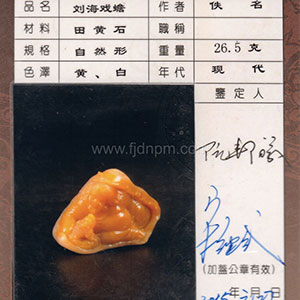 品名 刘海戏蟾 作者 佚名
材料 田黄石 職稱
規格 自然形 重量 26.5 克
色澤 黄、白 年代 现代
鑒定人
www.fjdnpm.com
(加蓋公章有效)
年 月 日